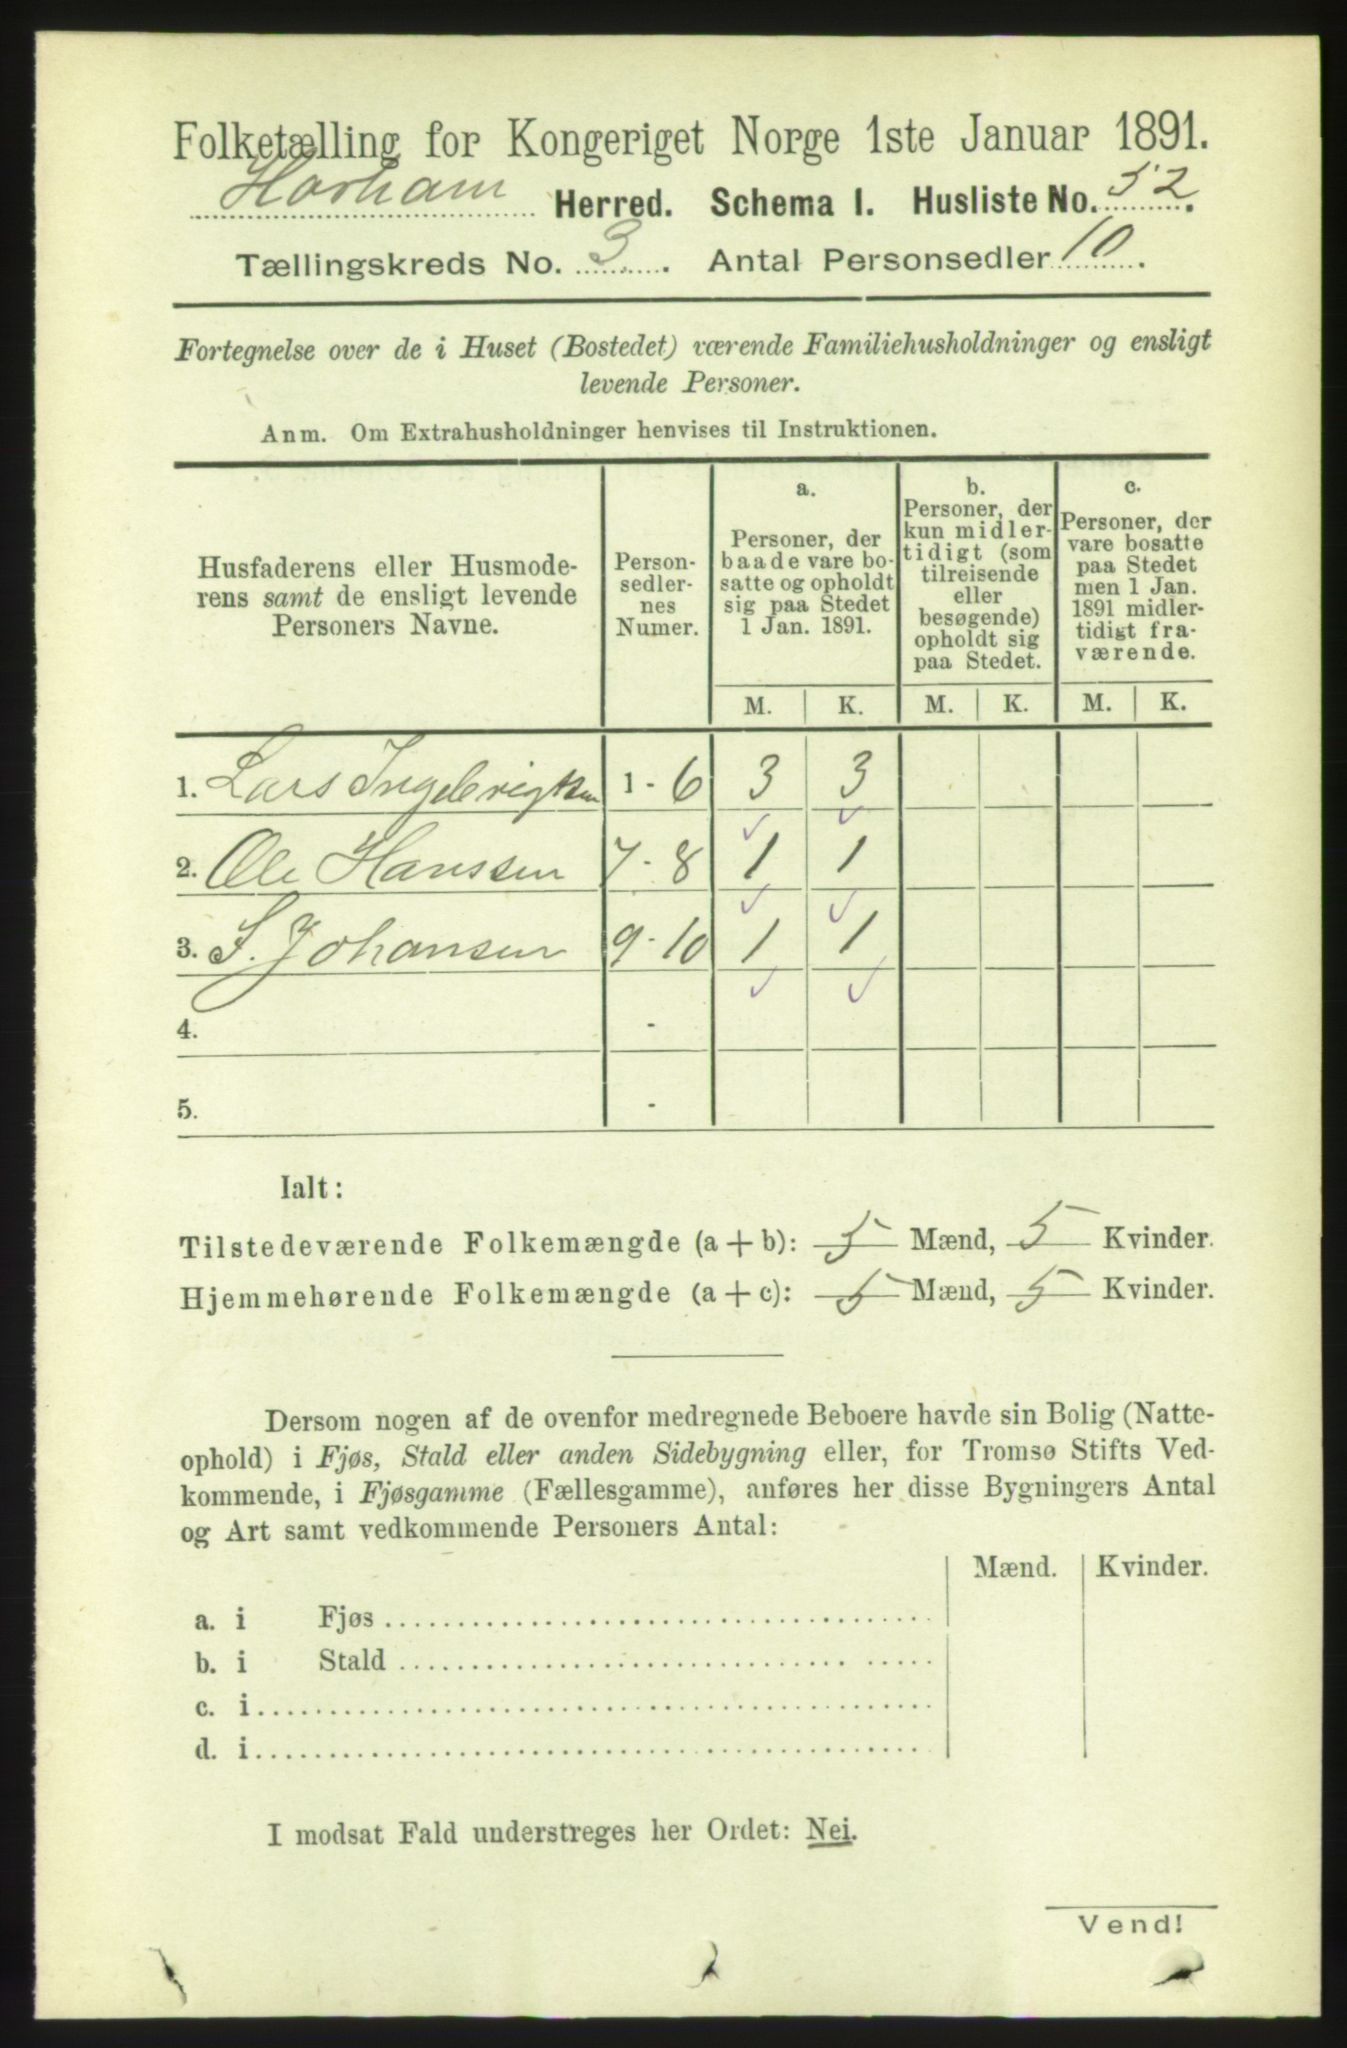 Folketælling for Kongeriget Norge 1ste Januar 1891.
Harham Herred. Schema I. Husliste No. 52.
Tællingskreds No. 3. Antal Personsedler 10.
Fortegnelse over de i Huset (Bostedet) værende Familiehusholdninger og ensligt
levende Personer.
Anm. Om Extrahusholdninger henvises til Instruktionen.
Husfaderens eller Husmode-
rens samt de ensligt levende
Personers Navne.
Person-
sedler-
nes
Numer.
a.
Personer, der
baade vare bo-
satte og opholdt
sig paa Stedet
1 Jan. 1891.
b.
Personer, der
kun midler-
tidigt (som
tilreisende
eller
besøgende)
opholdt sig
paa Stedet.
c.
Personer, der
vare bosatte
paa Stedet
men 1 Jan.
1891 midler-
tidigt fra-
værende.
M. K. M. K. M. K.
1. Lars Ingebrigtsen 1 - 6 3 3
2. Ole Hanssen 7 - 8 1 1
3. S. Johansen 9 - 10 1 1
4. -
5. -
Ialt:
Tilstedeværende Folkemængde (a + b): 5 Mænd, 5 Kvinder.
Hjemmehørende Folkemængde (a + c): 5 Mænd, 5 Kvinder.
Dersom nogen af de ovenfor medregnede Beboere havde sin Bolig (Natte-
ophold) i Fjøs, Stald eller anden Sidebygning eller, for Tromsø Stifts Ved-
kommende, i Fjøsgamme (Fællesgamme), anføres her disse Bygningers Antal
og Art samt vedkommende Personers Antal:
Mænd. Kvinder.
a. i Fjøs
b. i Stald
c. i
d. i
I modsat Fald understreges her Ordet: Nei.
Vend!